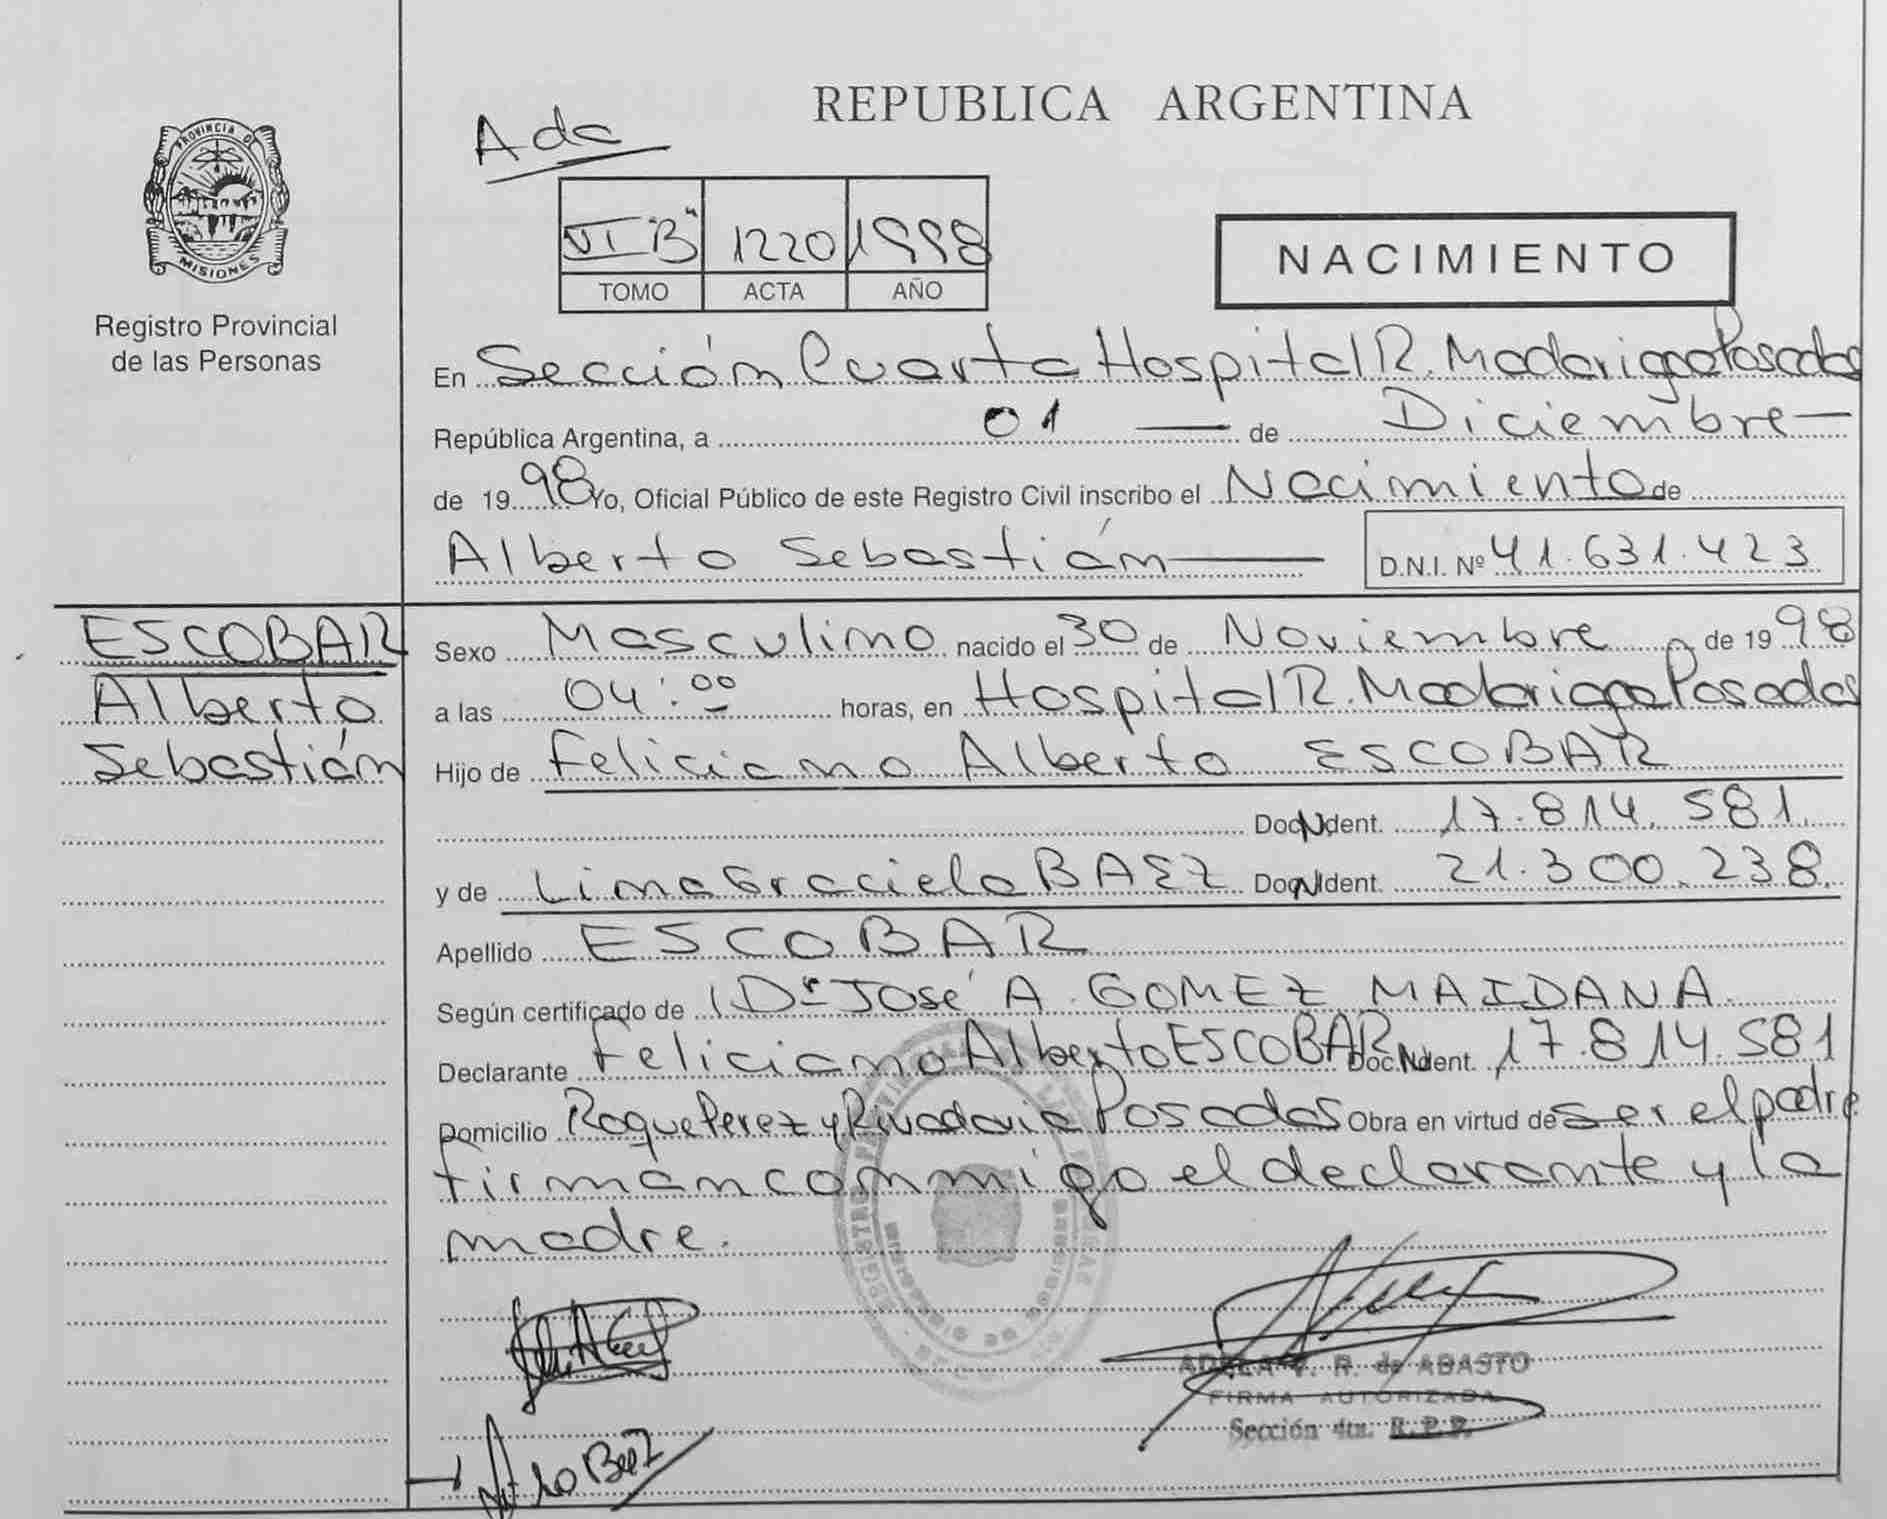 PROVINCIA DE
MISIONES
Registro Provincial
de las Personas
REPUBLICA ARGENTINA
Ada
VI "B" 1220 1998
TOMO ACTA AÑO
NACIMIENTO
En Sección Cuarta Hospital R. Madariaga Posadas
República Argentina, a 01 — de Diciembre —
de 1998 Yo, Oficial Público de este Registro Civil inscribo el Nacimiento de
Alberto Sebastián —
D.N.I. Nº 41.631.423
ESCOBAR
Alberto
Sebastián
Sexo Masculino nacido el 30 de Noviembre de 1998
a las 04:00 horas, en Hospital R. Madariaga Posadas
Hijo de Feliciano Alberto ESCOBAR
Doc. N. Ident. 17.814.581.
y de Lina Graciela BAEZ Doc. N. Ident. 21.300.238.
Apellido ESCOBAR
Según certificado de Dr José A. GOMEZ MAIDANA
Declarante Feliciano Alberto ESCOBAR Doc. N. Ident. 17.814.581
Domicilio Roque Perez y Rivadavia Posadas Obra en virtud de ser el padre
firman conmigo el declarante y la
madre.
ADELA V. R. de ABASTO
FIRMA AUTORIZADA
Sección 4ta. R. P. P.